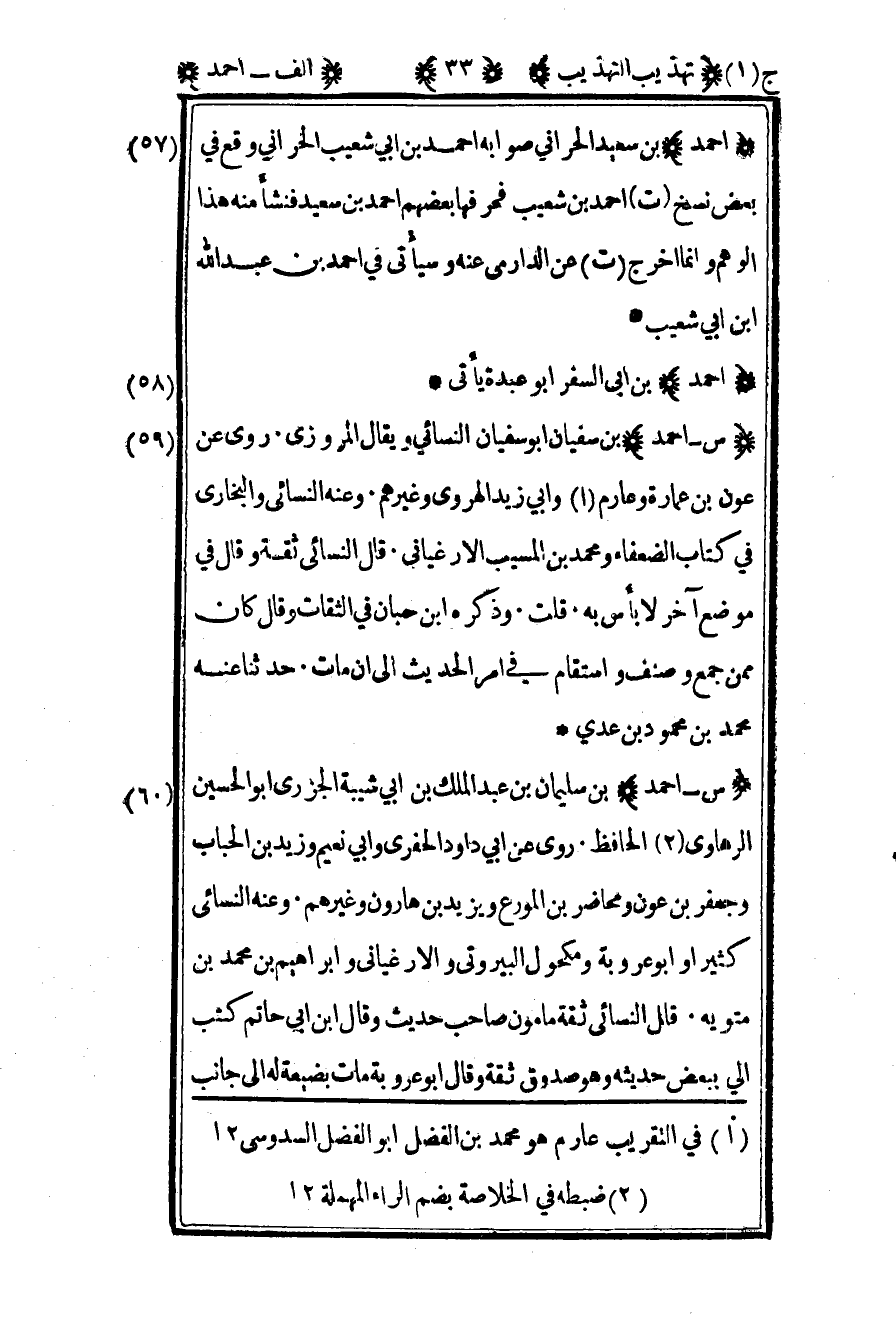 ج(١) ﴿ تهذيب التهذيب ﴾ ﴿ ٣٣ ﴾ ﴿ الف ـ احمد ﴾
﴿ احمد ﴾ بن سعيد الحراني صوابه احمد بن ابي شعيب الحراني وقع في (٥٧)
بعض نسخ (ت) احمد بن شعيب فحرفها بعضهم احمد بن سعيد فنشأ منه هذا
الوهم وانما اخرج (ت) عن الدارمى عنه وسيأتى في احمد بن عبد الله
ابن ابي شعيب *
﴿ احمد ﴾ بن ابى السفر ابو عبدة يأتى * (٥٨)
﴿ س ـ احمد ﴾ بن سفيان ابو سفيان النسائي ويقال المروزى · روى عن (٥٩)
عون بن عمارة وعارم (١) وابي زيد الهروى وغيرهم · وعنه النسائى والبخارى
في كتاب الضعفاء ومحمد بن المسيب الارغيانى · قال النسائى ثقة وقال في
موضع آخر لا بأس به · قلت · وذكره ابن حبان في الثقات وقال كان
ممن جمع وصنف واستقام في امر الحديث الى ان مات · حدثنا عنه
محمد بن محمود بن عدي *
﴿ س ـ احمد ﴾ بن سليمان بن عبد الملك بن ابي شيبة الجزرى ابو الحسين (٦٠)
الرهاوى (٢) الحافظ · روى عن ابي داود الحفرى وابي نعيم وزيد بن الحباب
وجعفر بن عون ومحاضر بن المورع ويزيد بن هارون وغيرهم · وعنه النسائى
كثيرا وابو عروبة ومكحول البيروتى والارغيانى وابراهيم بن محمد بن
متويه · قال النسائى ثقة مامون صاحب حديث وقال ابن ابي حاتم كتب
الي ببعض حديثه وهو صدوق ثقة وقال ابو عروبة مات بضيعة له الى جانب
(١) في التقريب عارم هو محمد بن الفضل ابو الفضل السدوسى ١٢
(٢) ضبطه في الخلاصة بضم الراء المهملة ١٢